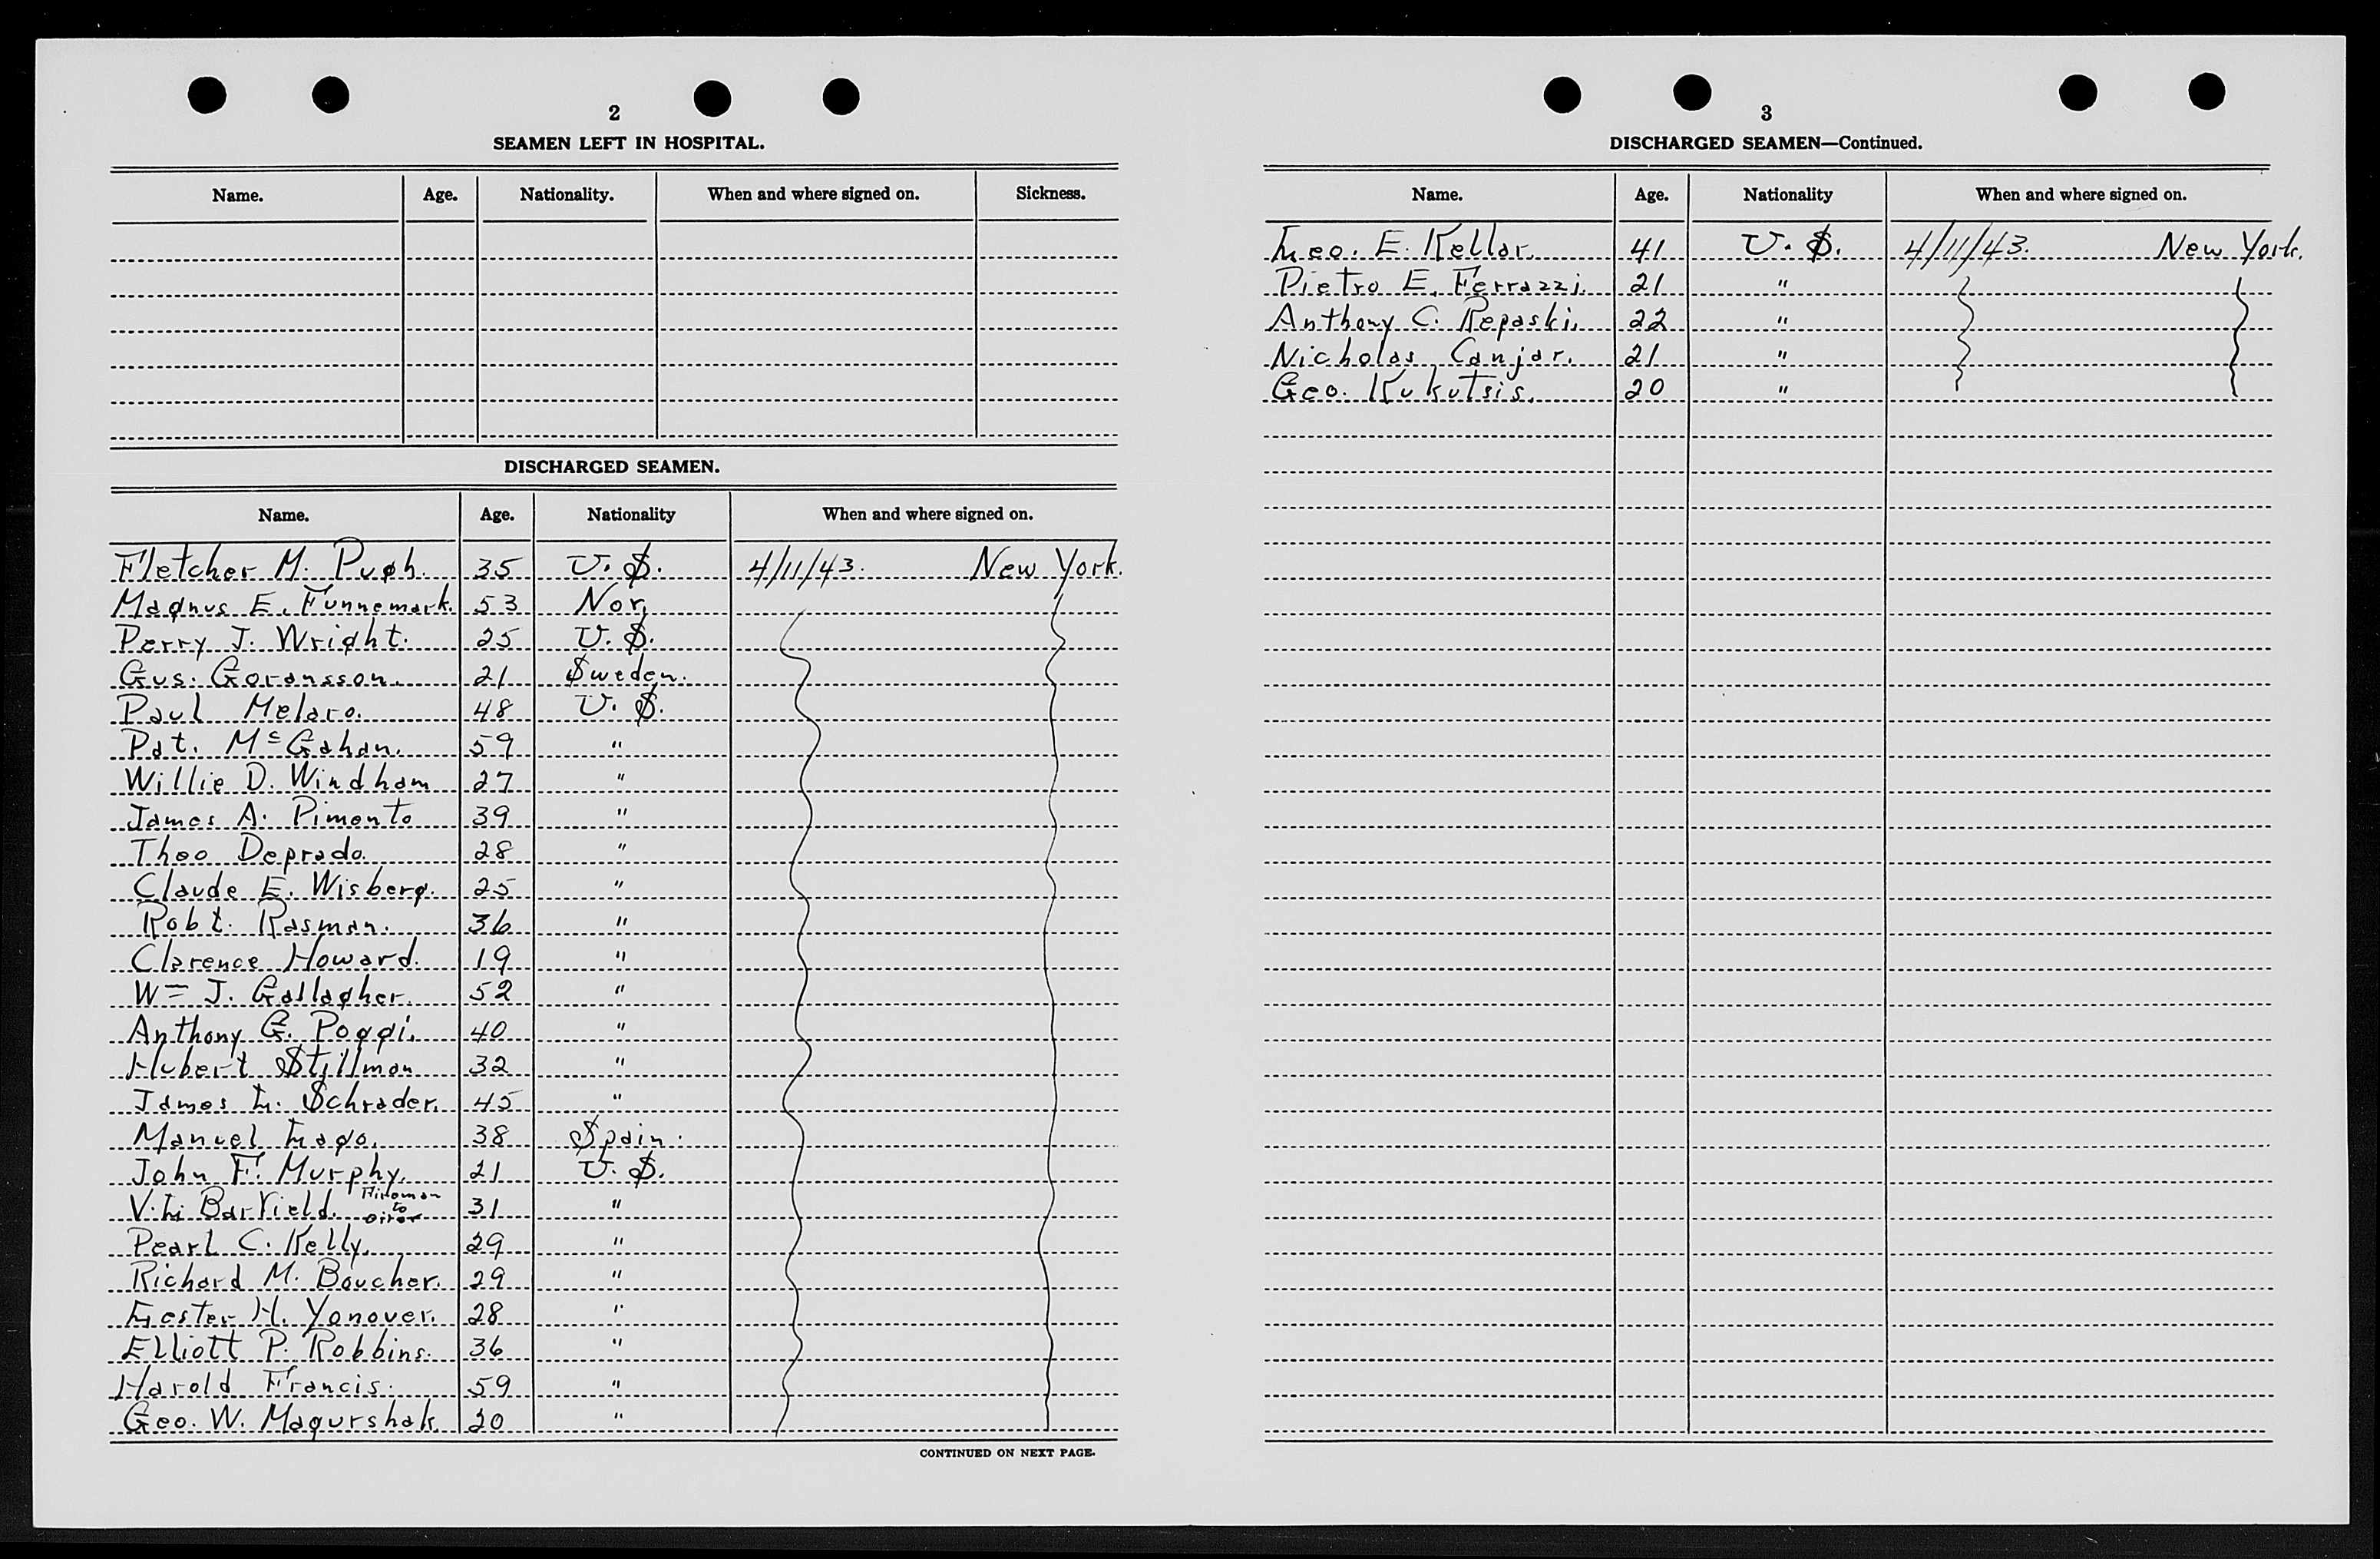 2
SEAMEN LEFT IN HOSPITAL.
Name. Age. Nationality. When and where signed on. Sickness.
DISCHARGED SEAMEN.
Name. Age. Nationality When and where signed on.
Fletcher M. Pugh. 35 U.S. 4/11/43. New York.
Magnus E. Funnemark. 53 Nor.
Perry J. Wright. 25 U.S.
Gus. Goransson. 21 Sweden.
Paul Melaro. 48 U.S.
Pat. McGahan. 59 "
Willie D. Windham 27 "
James A. Pimento 39 "
Theo Deprado. 28 "
Claude E. Wisberg. 25 "
Robt. Rasman. 36 "
Clarence Howard. 19 "
Wm J. Gallagher. 52 "
Anthony G. Poggi. 40 "
Hubert Stillman 32 "
James L. Schrader. 45 "
Manuel Lago. 38 Spain.
John F. Murphy. 21 U.S.
V. L. Barfield. Fireman to Oiler 31 "
Pearl C. Kelly. 29 "
Richard M. Boucher. 29 "
Lester H. Yonover. 28 "
Elliott P. Robbins. 36 "
Harold Francis. 59 "
Geo. W. Magurshak. 20 "
CONTINUED ON NEXT PAGE.
3
DISCHARGED SEAMEN—Continued.
Name. Age. Nationality When and where signed on.
Leo. E. Kellar. 41 U.S. 4/11/43. New York.
Pietro E. Ferrazzi. 21 "
Anthony C. Repaski. 22 "
Nicholas Canjar. 21 "
Geo. Kukutsis. 20 "